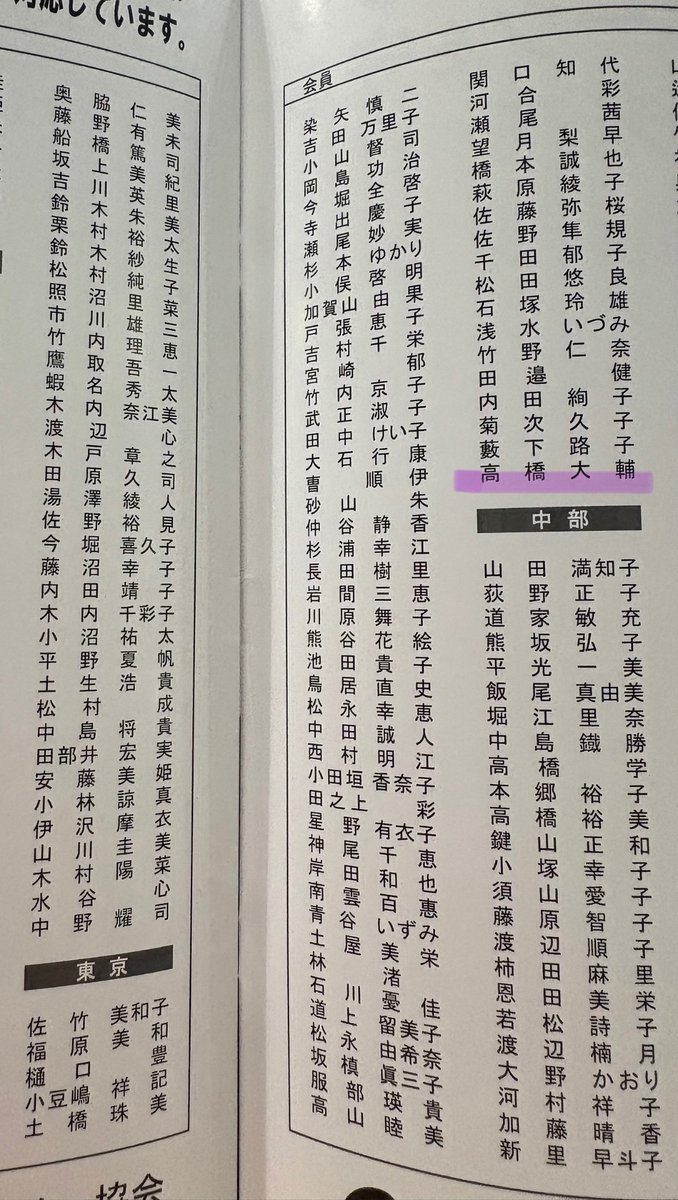 対応しています。
奥脇仁美
藤野有未
船橋篤司
坂上美紀
吉川英里
鈴木朱美
栗村裕太
鈴木紗生
松村純子
照沼里菜
市川雄三
竹内理恵
鷹取吾一
蝦名秀太
木内奈江美
渡辺心
木戸章之
田原久司
湯澤綾人
佐野裕見
今堀喜久子
藤沼幸子
内田靖子
木内千彩子
小沼祐太
平野夏帆
土生浩貴
松村成
中島将貴
田部井宏実
安藤美姫
小林諒真
伊沢摩衣
山川圭美
木村陽菜
水谷心
中野耀司
東京
佐竹美和子
福原美和
樋口豊
小豆嶋祥記
土橋珠美
協会
会員
染矢慎二
吉田万里子
小山督司
岡島功治
今堀全啓
寺出慶子
瀬尾妙実
杉本ゆかり
小俣啓明
加賀山由果
戸張恵子
吉村千栄
宮崎郁
竹内京子
武正淑子
田中けい子
大石行康
曹順伊
砂山朱
仲谷静香
杉浦幸江
長田樹里
岩間三恵
川原舞子
熊谷花絵
池田貴子
鳥居直史
松永幸恵
中田誠人
西村明江
小田垣香奈子
田之上彩
星野有衣子
神尾千恵
岸田和也
南雲百惠
青谷いずみ
土屋美栄
林渚
石川憂佳
道上留美子
松永由希奈
坂槙眞三子
服部瑛貴
高山睦美
関口知代
河合彩
瀬尾茜
望月梨早
橋本誠也
萩原綾子
佐藤弥桜
佐野隼規
千田郁子
松田悠良
石塚玲雄
浅水いづみ
竹野仁奈
田邉健
内田絢子
菊次久子
藪下路子
高橋大輔
中部
山田満知子
荻野正子
道家敏充
熊坂弘子
平光一美
飯尾真由美
堀江里奈
中島鐡勝
高橋学
本郷裕子
高橋裕美
鍵山正和
小塚幸子
須山愛子
藤原智子
渡辺順子
柿田麻里
恩田美栄
若松詩子
渡辺楠月
大野かおり
河村祥子
加藤晴香
新里早斗子